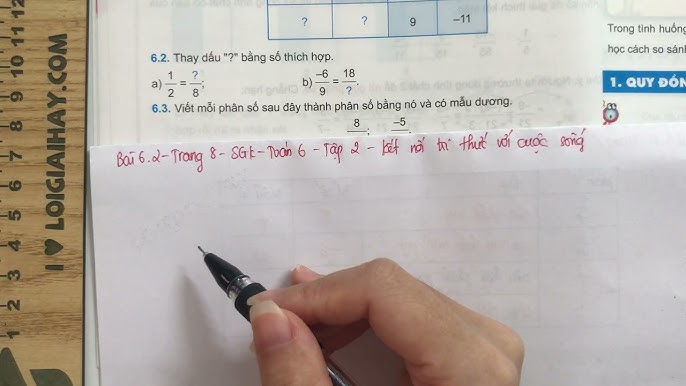 ? ? 9 –11
6.2. Thay dấu "?" bằng số thích hợp.
a) 1/2 = ?/8; b) –6/9 = 18/?.
6.3. Viết mỗi phân số sau đây thành phân số bằng nó và có mẫu dương.
8 ; –5 .
Bài 6.2 – Trang 8 – SGK – Toán 6 – Tập 2 – Kết nối tri thức với cuộc sống
Trong tình huống
học cách so sánh
1. QUY ĐỒN
I ♥ LOIGIAIHAY.COM
1 2 3 4 5 6 7 8 9 10 11 12